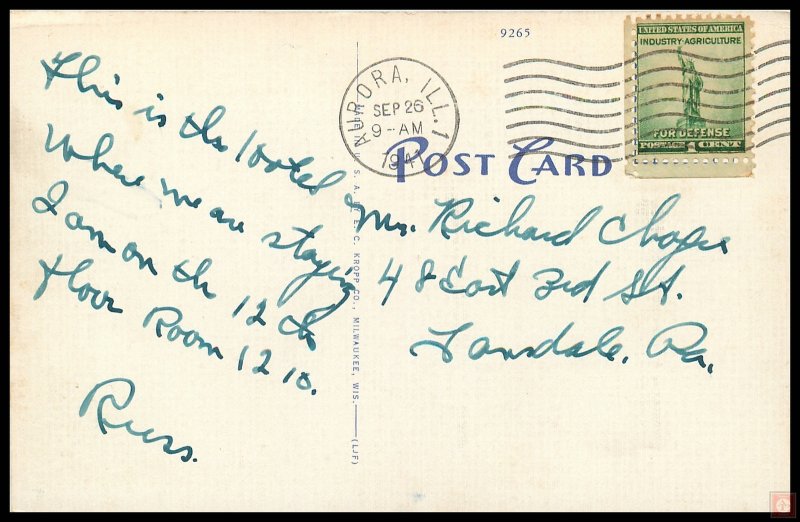 9265
UNITED STATES OF AMERICA
INDUSTRY-AGRICULTURE
FOR DEFENSE
POSTAGE 1 CENT
AURORA, ILL. 1
SEP 26
9-AM
1941
POST CARD
This is the Hotel
Where we are staying
I am on the 12 th
floor Room 1210.
Russ.
Mr. Richard
48 East 3rd St.
Lansdale, Pa.
MADE IN U. S. A. BY E. C. KROPP CO., MILWAUKEE, WIS.
(LJF)